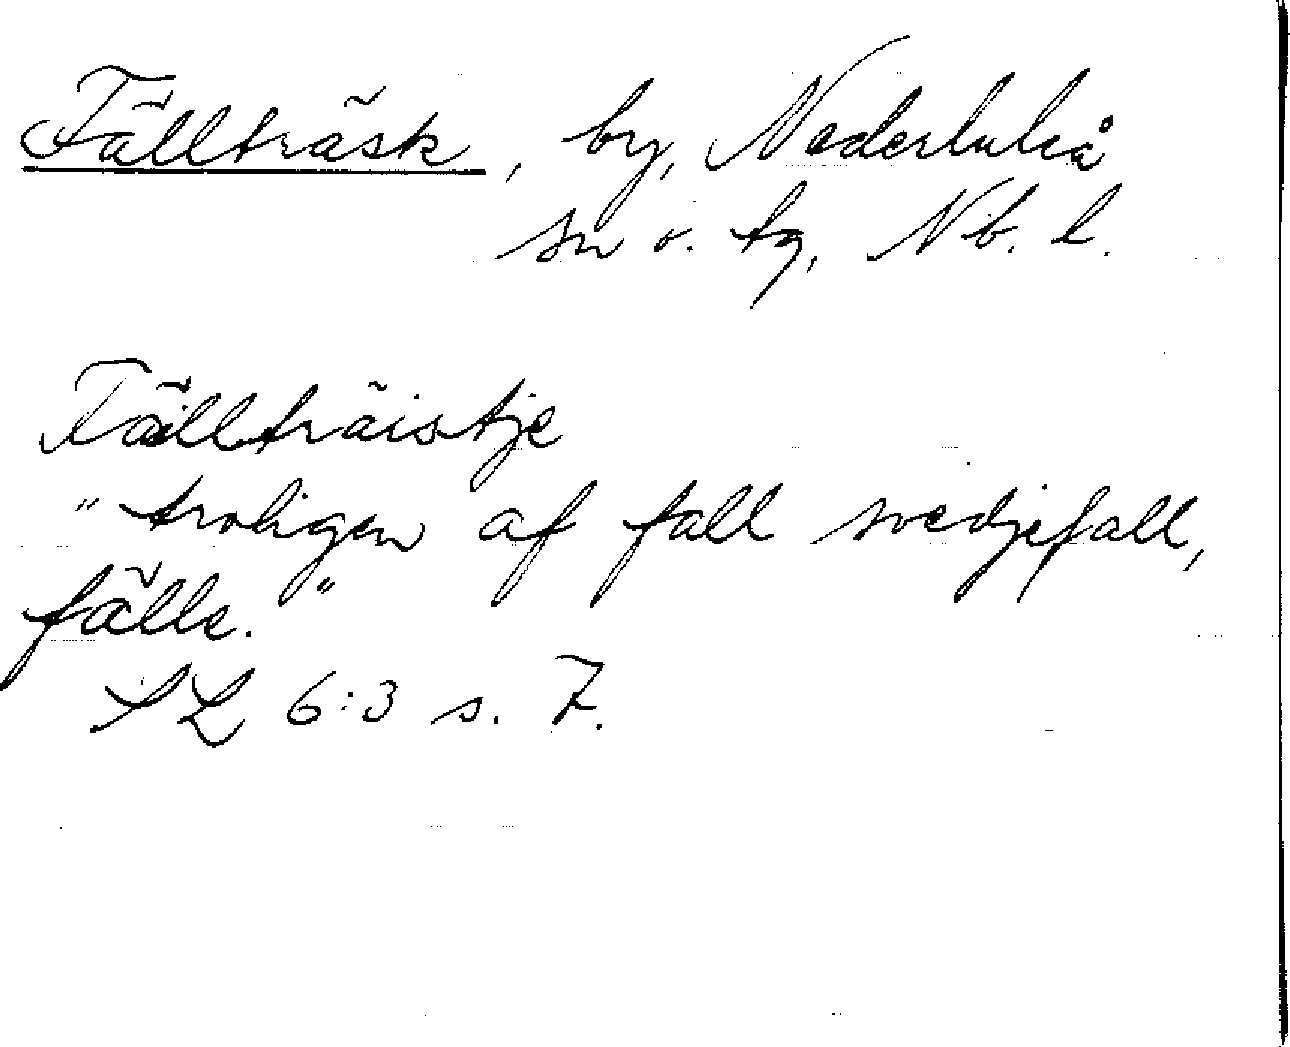 Fällträsk, by, Nederluleå
sn o. tg, Nb. l.
Fäillträistje
"troligen af fall svedjefall,
fälle."
SL 6:3 s. 7.